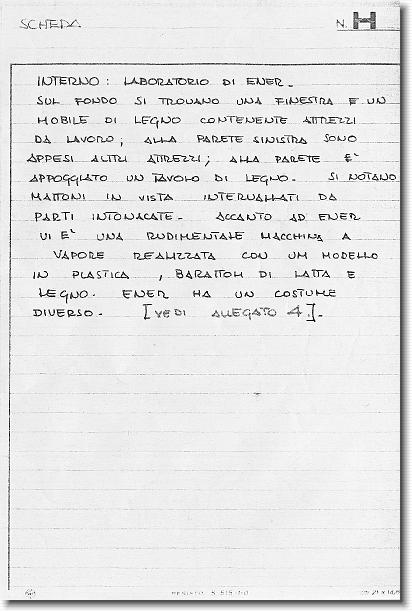 SCHEDA N. H
INTERNO: LABORATORIO DI ENER.
SUL FONDO SI TROVANO UNA FINESTRA E UN
MOBILE DI LEGNO CONTENENTE ATTREZZI
DA LAVORO; ALLA PARETE SINISTRA SONO
APPESI ALTRI ATTREZZI; ALLA PARETE E'
APPOGGIATO UN TAVOLO DI LEGNO. SI NOTANO
MATTONI IN VISTA INTERVALLATI DA
PARTI INTONACATE. ACCANTO AD ENER
VI E' UNA RUDIMENTALE MACCHINA A
VAPORE REALIZZATA CON UM MODELLO
IN PLASTICA, BARATTOLI DI LATTA E
LEGNO. ENER HA UN COSTUME
DIVERSO. [VEDI ALLEGATO 4.].